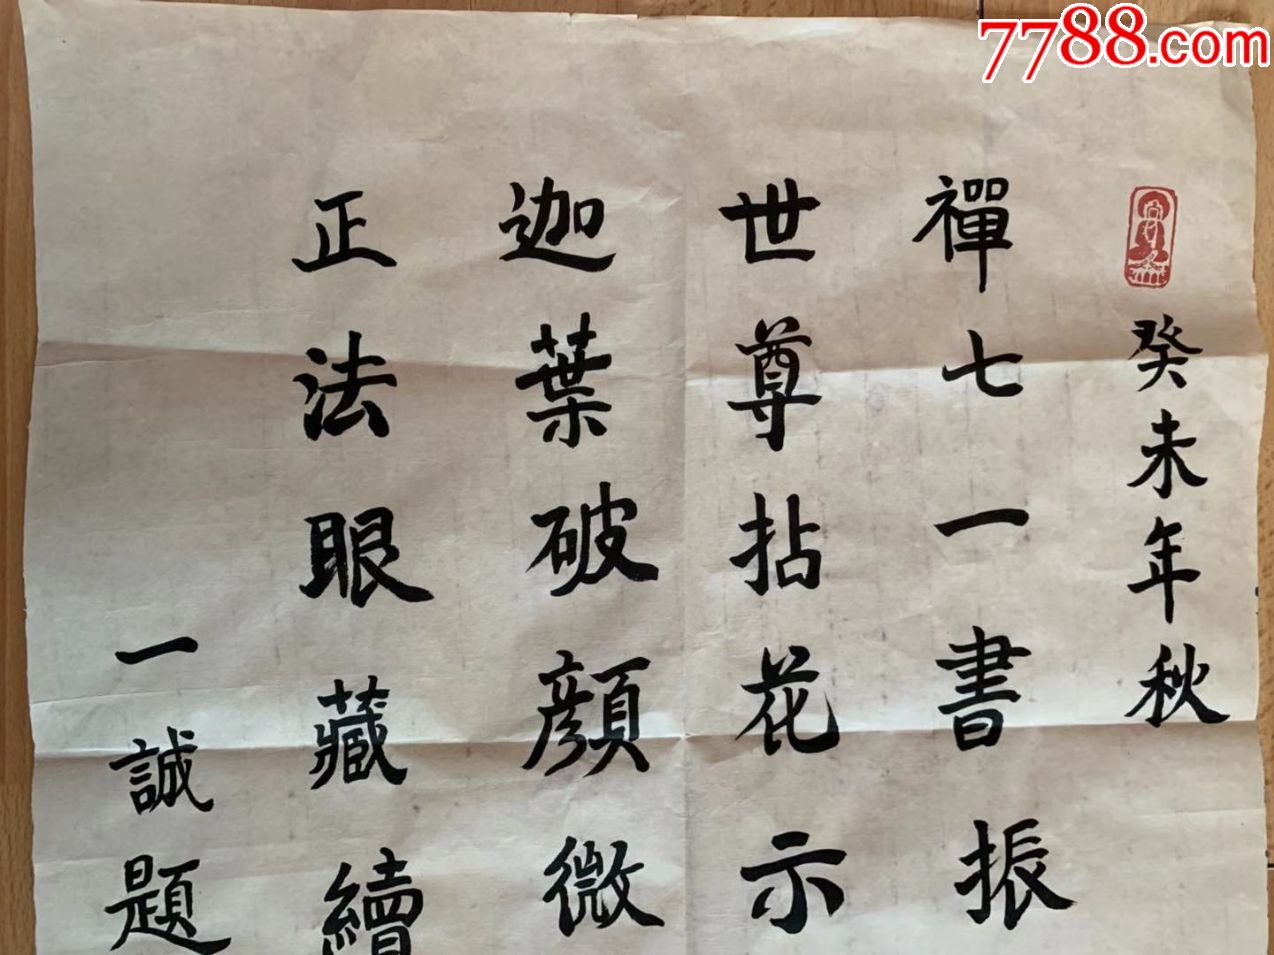 7788.com
癸未年秋
禪七一書振
世尊拈花示
迦葉破顏微
正法眼藏續
一誠題